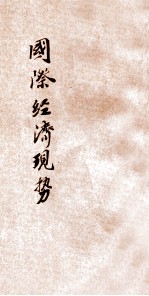 國際经濟現势